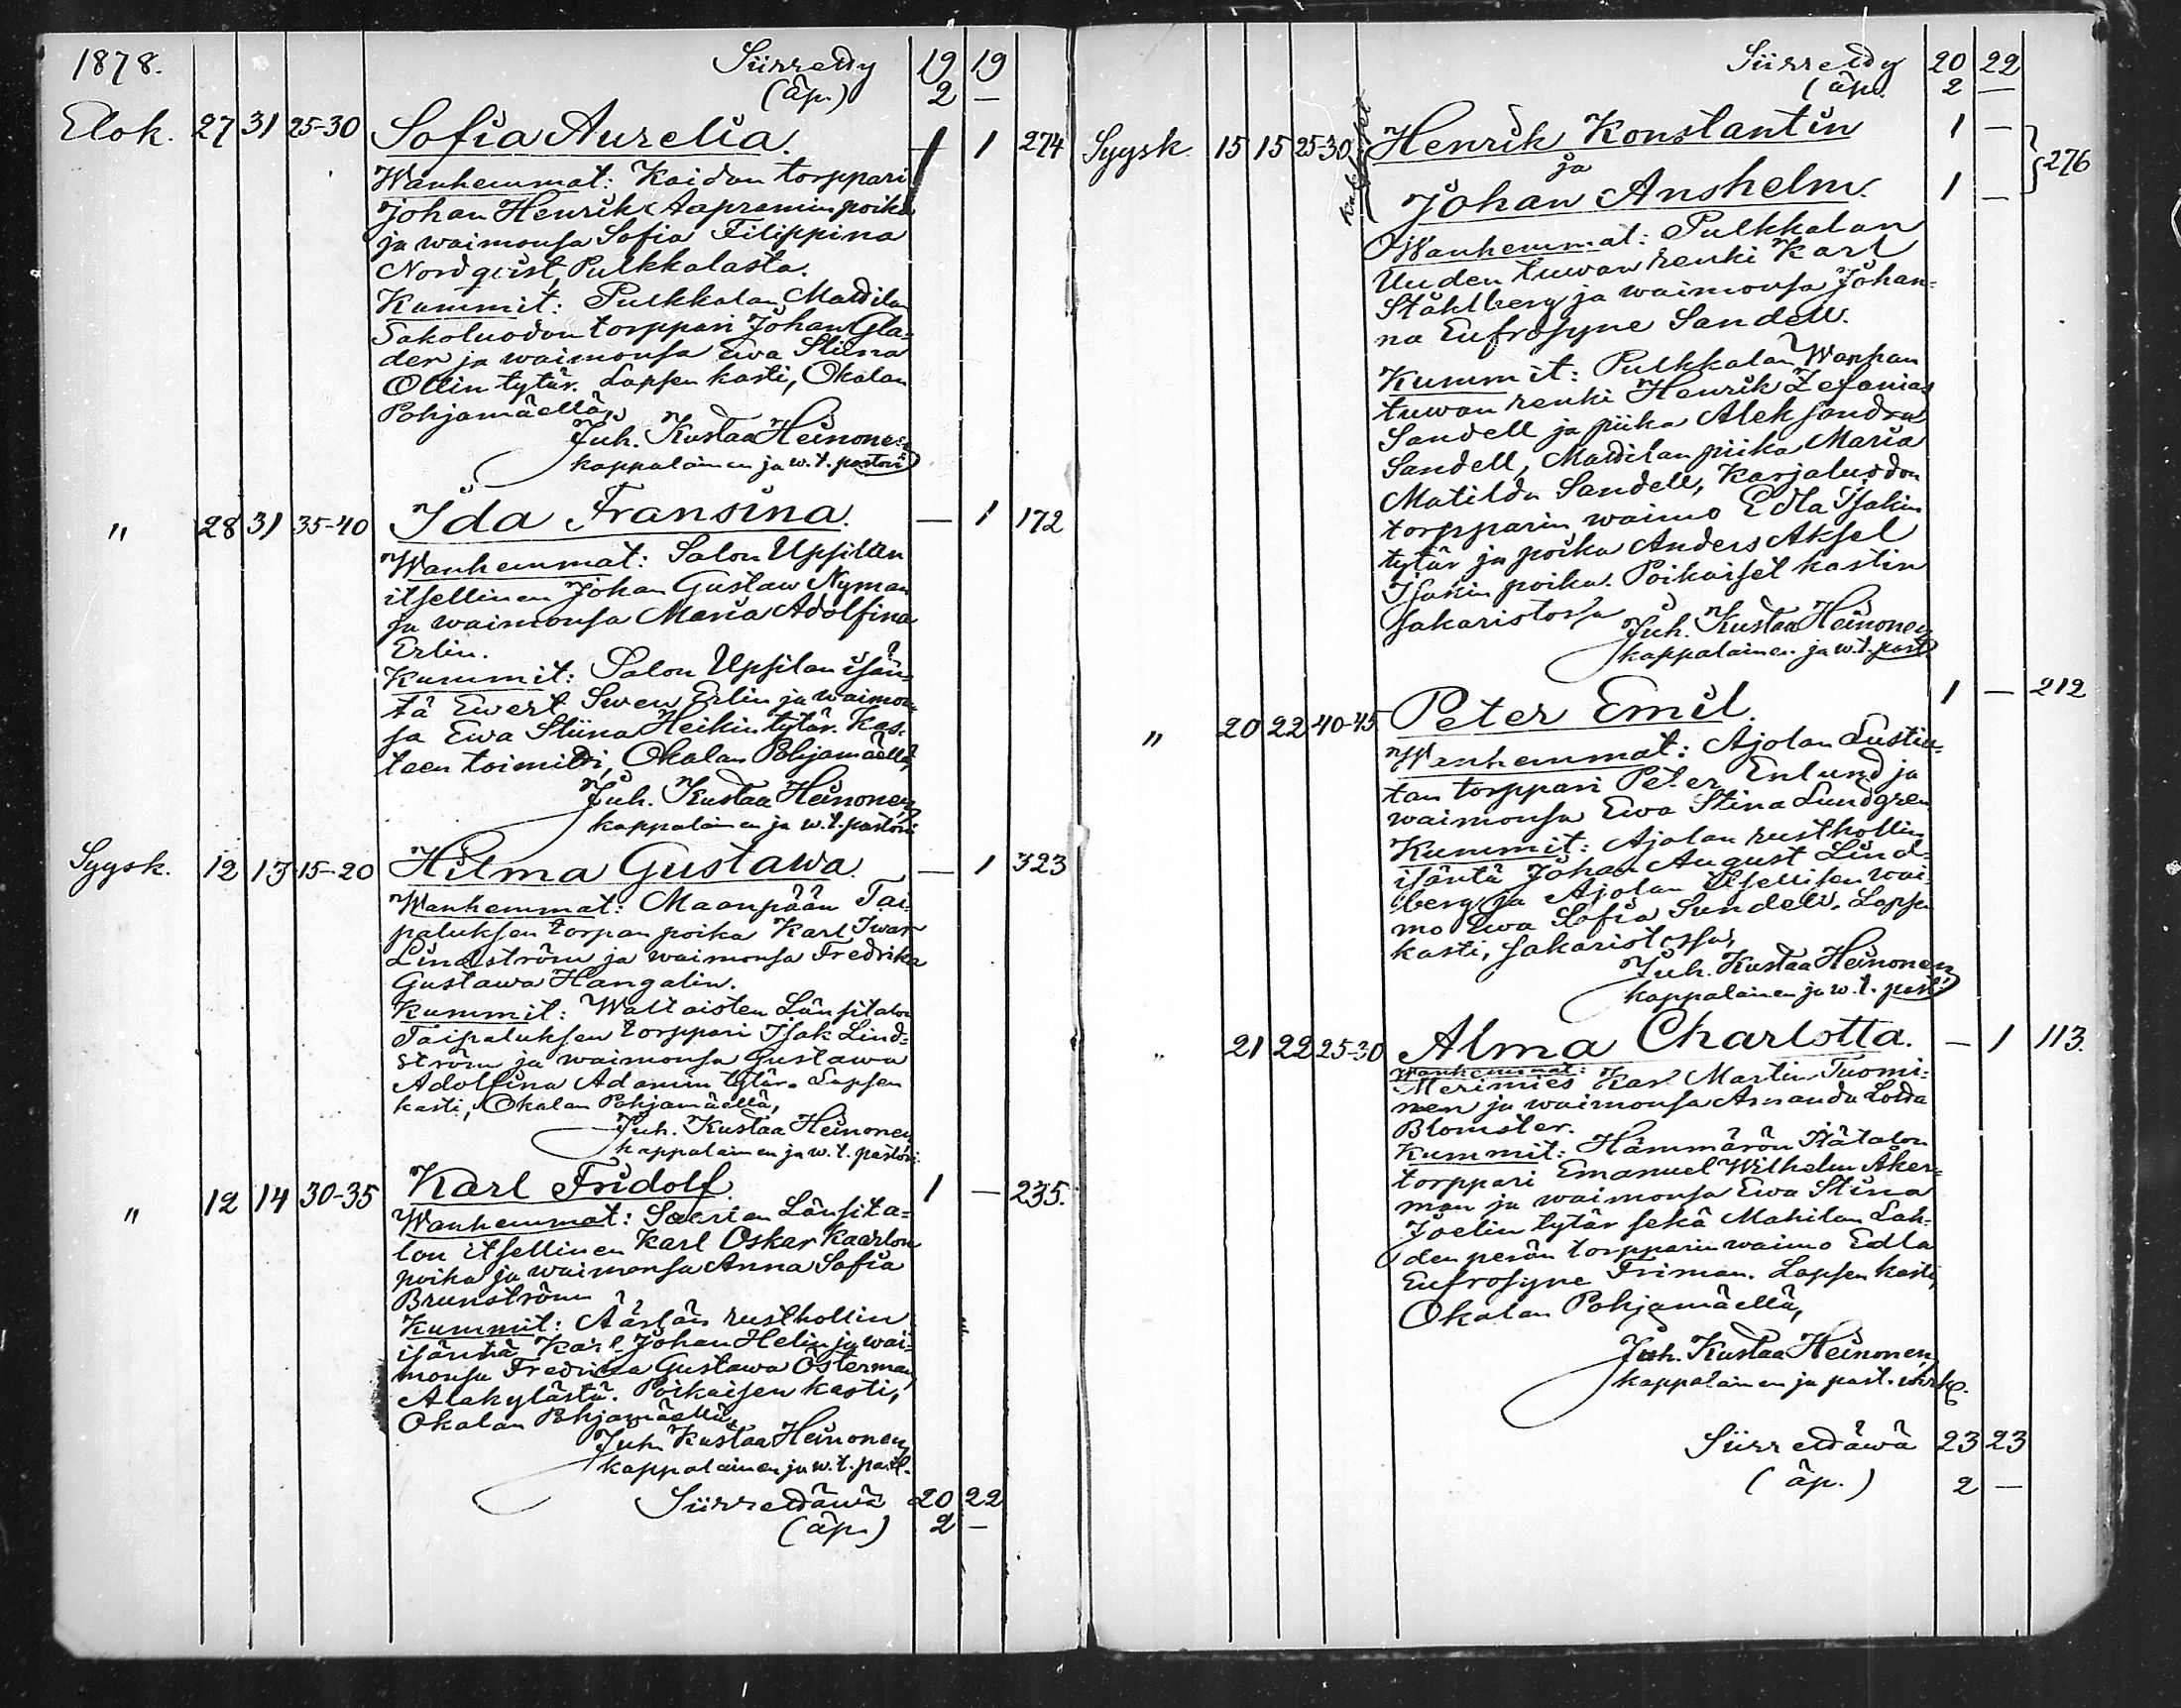 1878. Siirretty 19 19
(äp.) 2 —
Elok. 27 31 25-30 Sofia Aurelia. — 1 274
Wanhemmat: Kaidan torppari
Johan Henrik Aapramin poika
ja waimonsa Sofia Filippina
Nordqvist, Pulkkalasta.
Kummit: Pulkkalan Mattilan
Sakoluodon torppari Johan Gla-
der ja waimonsa Ewa Stiina
Ollin tytär. Lapsen kasti, Okalan
Pohjamäellä,
Juh. Kustaa Heinonen
kappalainen ja w.t. pastori
" 28 31 35-40 Ida Fransina. — 1 172
Wanhemmat: Salon Upsilan
itsellinen Johan Gustaw Nyman
ja waimonsa Maria Adolfina
Erlin.
Kummit: Salon Upsilan isän-
tä Ewert Swen Erlin ja waimon-
sa Ewa Stiina Heikin tytär. Kas-
teen toimitti, Okalan Pohjamäellä,
Juh. Kustaa Heinonen,
kappalainen ja w.t. pastori.
Syysk. 12 13 15-20 Hilma Gustawa. — 1 323
Wanhemmat: Maanpään Tai-
paluksen torpan poika Karl Iwar
Lindström ja waimonsa Fredrika
Gustawa Hangelin.
Kummit: Waltaisten Länsitalon
Taipaluksen torppari Isak Lind-
ström ja waimonsa Gustawa
Adolfina Adamin tytär. Lapsen
kasti, Okalan Pohjamäellä,
Juh. Kustaa Heinonen
kappalainen ja w.t. pastori.
" 12 14 30-35 Karl Fridolf. 1 — 235.
Wanhemmat: Saarien Länsita-
lon itsellinen Karl Oskar Kaarlon
poika ja waimonsa Anna Sofia
Brunström
Kummit: Äärlän rusthollin
isäntä Karl Johan Helin ja wai-
monsa Fredrika Gustawa Österman,
Alakylästä. Poikaisen kasti,
Okalan Pohjamäellä,
Juh. Kustaa Heinonen,
kappalainen ja w.t. past.
Siirrettäwä 20 22
(äp.) 2 —
Siirretty 20 22
(äp.) 2 —
Syysk. 15 15 25-30 Henrik Konstantin 1 —
ja } 276
Johan Anshelm. 1 —
Wanhemmat: Pulkkalan
Uuden tuwan renki Karl
Ståhlberg ja waimonsa Johan-
na Eufrosyne Sandell.
Kummit: Pulkkalan Wanhan
tuwan renki Henrik Zefanias
Sandell ja piika Aleksandra
Sandell, Mattilan piika Maria
Matilda Sandell, Karjaluodon
torpparin waimo Edla Isakin
tytär ja poika Anders Aksel
Isakin poika. Poikaiset kastin
sakaristossa
Juh. Kustaa Heinonen,
kappalainen ja w.t. past.
" 20 22 40-45 Peter Emil. 1 — 212
Wanhemmat: Ajolan Lustin-
tan torppari Peter Enlund ja
waimonsa Ewa Stina Lundgren
Kummit: Ajolan rusthollin
isäntä Johan August Lind-
berg ja Ajolan itsellisen wai-
mo Ewa Sofia Sundell. Lapsen
kasti, sakaristossa,
Juh. Kustaa Heinonen,
kappalainen ja w.t. past.
" 21 22 25-30 Alma Charlotta. — 1 113.
Wanhemmat:
Merimies Karl Martin Tuomi-
nen ja waimonsa Amanda Lotta
Blomster.
Kummit: Hämmärön Itätalon
torppari Emanuel Wilhelm Åker-
man ja waimonsa Ewa Stina
Joelin tytär sekä Mahilan Lah-
den perän torpparin waimo Edla
Eufrosyne Friman. Lapsen kasti,
Okalan Pohjamäellä,
Juh. Kustaa Heinonen,
kappalainen ja past. wirk.
Siirrettäwä 23 23
(äp.) 2 —